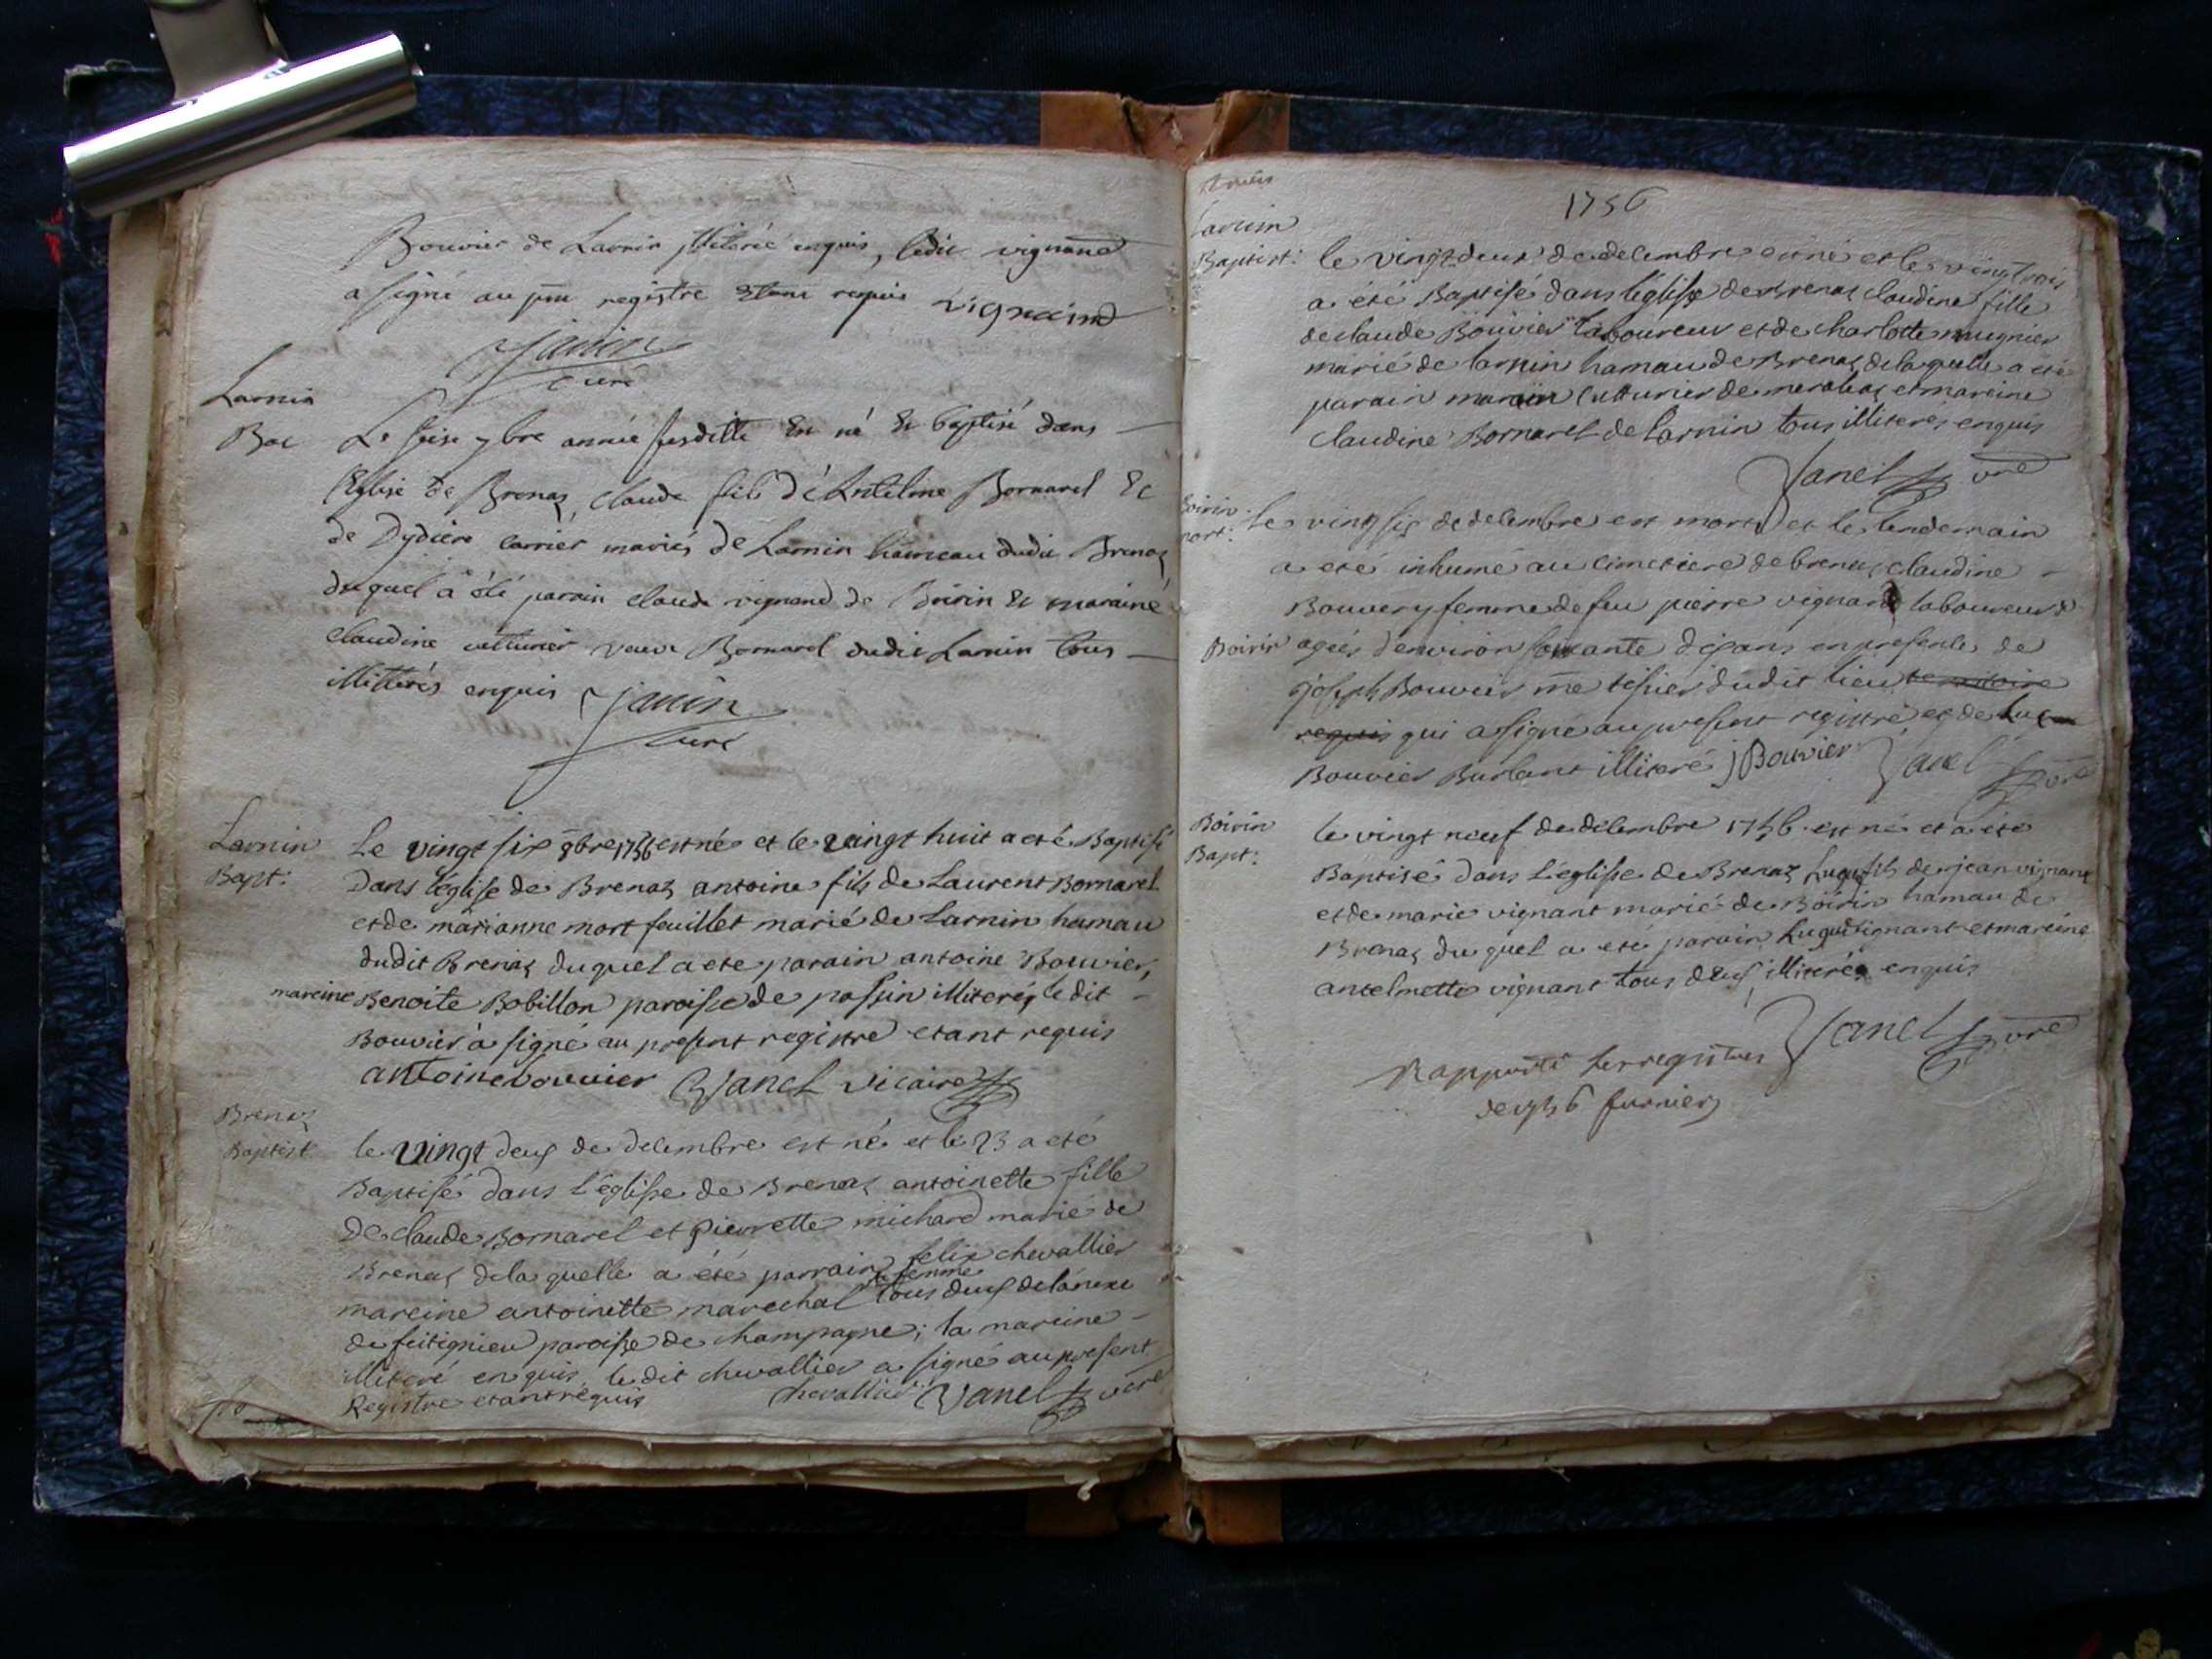 Bouvier de Larnin illiteré enquis, ledit vignand
a signé au pnt registre etant requis vignaind
Janin
curé
Larnin
Bac Le seise 7bre année susditte Est né & baptisé dans
l'Eglise de Brenaz, claude fils d'Antelme Bornarel &
de Dydiere carrier mariés de Larnin hameau dudit Brenaz
duquel à été parain claude vignand de Boirin & maraine
claudine cutturier veuve Bornarel dudit Larnin tous
illittérés enquis Janin
curé
Larnin
Bapt:
Le vingt six 8bre 1756 est né et le vingt huit a eté Baptisé
Dans l'eglise de Brenaz antoine fils de Laurent Bornarel
et de marianne mort feuillet marié de Larnin hamau
dudit Brenaz duquel a ete parain antoine Bouvier,
mareine Benoite Bobillon paroisse de passin illiterés le dit
Bouvier à signé au present registre etant requis
antoine bouvier Janel vicaire
Brenaz
Baptist:
le vingt deux de decembre est né et le 23 a eté
Baptisé dans l'église de Brenaz antoinette fille
de claude Bornarel et pierrette michard marié de
Brenaz dela quelle a été parrain felix chevallier
la femme
mareine antoinette marechal tous deux delanexe
de fitignieu paroisse de champagne; la mareine
illiteré enquis, le dit chevallier a signé au present
Registre etant réquis chevallier Janel vicre
1756
Larnin
Baptist: le vingt deux de decembre est né et le vingtrois
a été Baptisé dans l'église de Brenaz claudine fille
de claude Bouvier laboureur et de charlotte mugnier
marié de larnin hamau de Brenaz dela quelle a été
parain marin cutturier de et mareine
claudine Bornarel de Larnin tous illiterés enquis
Janel vre
Boirin
mort: le vingt six de decembre est mort et le lendemain
a eté inhumé au cimetiere de brenaz claudine
Bouvery femme de feu pierre vignand laboureur de
Boirin agée d'environ soixante dix ans en presence de
joseph Bouvier me tissier dudit lieu temoins
requis qui a signé au present registre et de Luc
Bouvier Burlant illiteré j Bouvier Janel vre
Boirin
Bapt:
le vingt neuf de decembre 1756 est né et a été
Baptisé dans l'église de Brenaz fils de jean vignant
et de marie vignant marié de Boirin hamau de
Brenaz du quel a eté parain vignant et mareine
antelmette vignant tous deux illiterés enquis
Janel vre
Rapporté les registres
de 1756 furnier